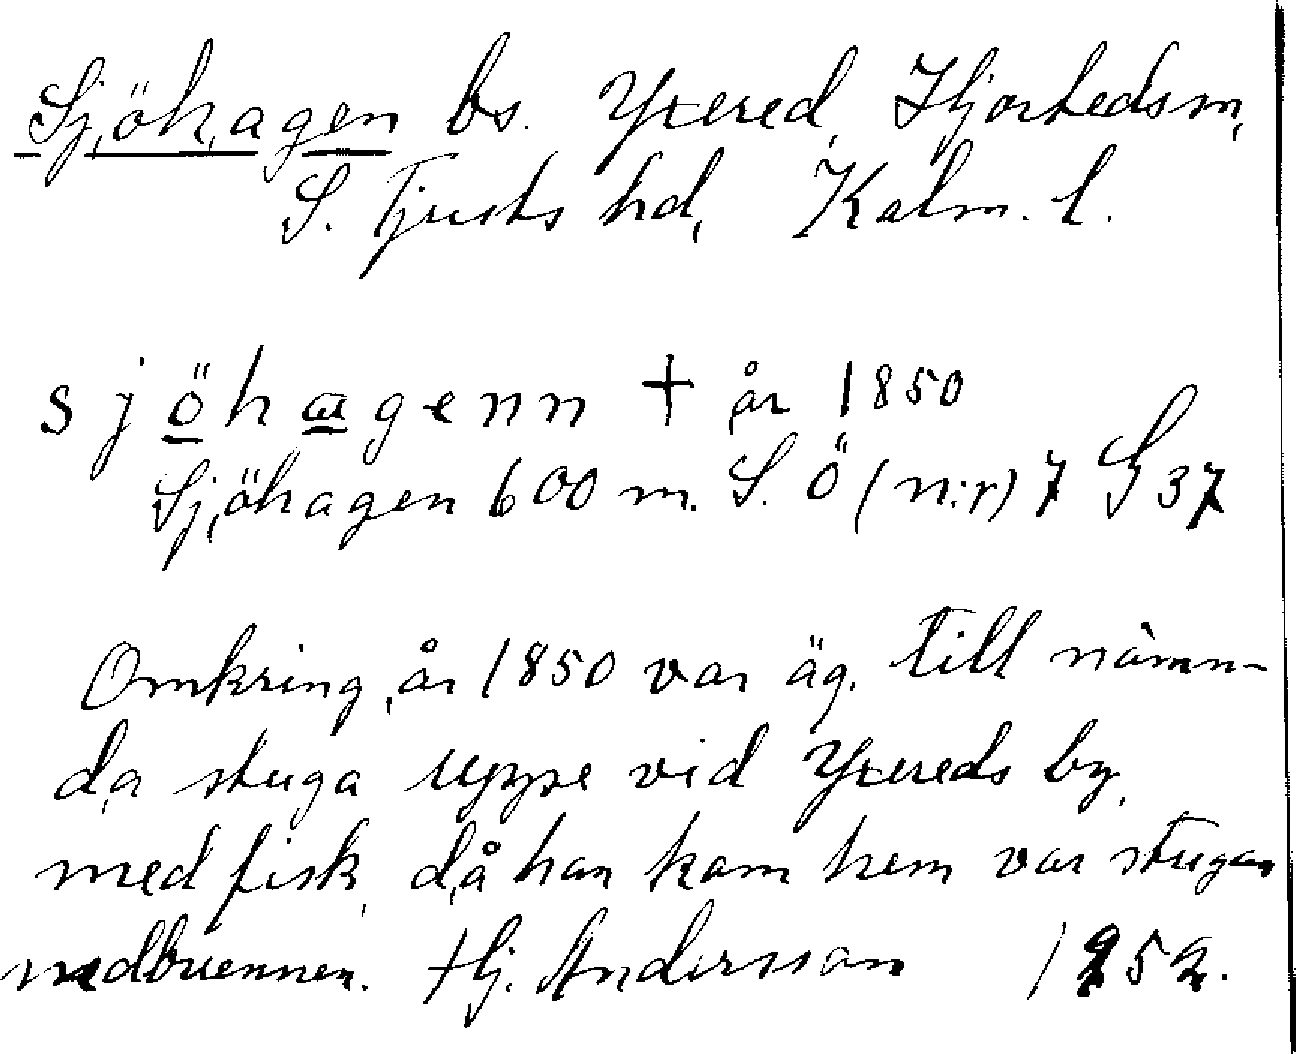 Sjöhagen bs. Yxered, Hjortedsm,
S. Tjusts hd, Kalm. l.
sjöhagenn + år 1850
Sjöhagen 600 m. S. Ö (n:r) 7 G 37
Omkring år 1850 var äg. till nämn-
da stuga uppe vid Yxereds by,
med fisk, då han kom hem var stugan
nedbrennen. Hj. Andersson 1952.